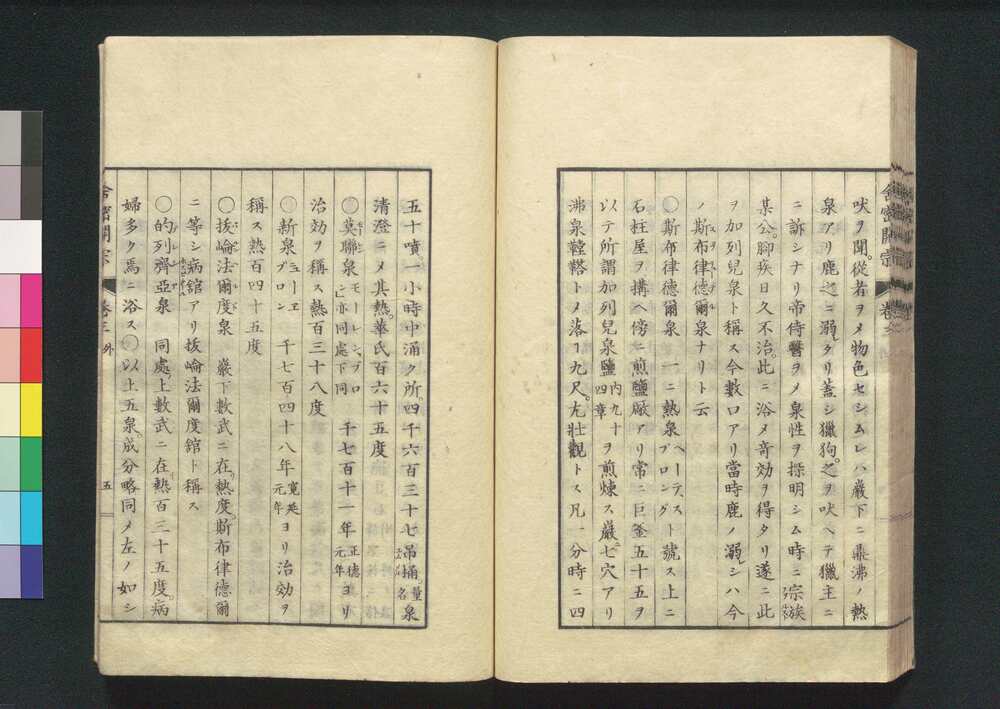 吠ヲ聞從者ヲメ物色セシムレハ巖下ニ鼎沸ノ熱
泉アリ鹿之ニ溺タリ蓋シ獵狗之ヲ吠ヘテ獵主ニ
ニ訴シナリ帝侍醫ヲメ泉性ヲ探明シム時ニ宗族
某公脚疾日久不治此ニ浴メ奇効ヲ得タリ遂ニ此
ヲ加列兒泉ト稱ス今數口アリ當時鹿ノ溺シハ今
ノ斯布律德爾泉ナリト云
〇斯布律德爾泉 一ニ熱泉ヘーテスプロンストング號ス上ニ
石柱屋ヲ搆ヘ傍ニ煎鹽厰アリ常ニ巨釜五十五ヲ
以テ所謂加列兒泉鹽内九十四章ヲ煎煉ス巖七穴アリ
沸泉鞺鞳トメ落ヿ九尺尤壯觀トス凡一分時ニ四
舎密開宗 卷三
五十噴一小時中涌ク所四千六百三十七吊桶量名泉
清澄ニメ其熱華氏百六十五度
〇莫聯泉モーレンブロン亦同處下同 千七百十一年正德元年ヨリ
治効ヲ稱ス熱百三十八度
〇新泉ニーヱブロン 千七百四十八年寛延元年ヨリ治効ヲ
稱ス熱百四十五度
〇抜崘法爾度泉 巖下數武ニ在熱度斯布律德爾
ニ等シ病舘アリ抜崘法爾度舘ト稱ス
〇的列齊亞泉 同處上數武ニ在熱百三十五度病
婦多ク焉ニ浴ス〇以上五泉成分略同メ左ノ如シ
舎密開宗 卷三 外 五